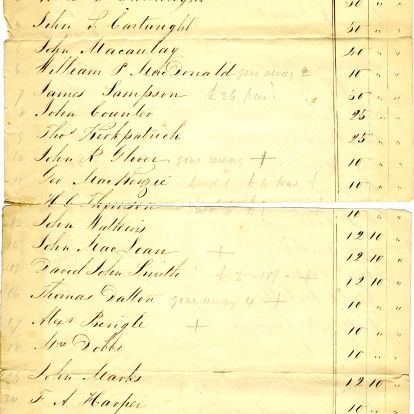 John S. Cartwright 50 " "
5 John Macaulay 40 " "
6 William P MacDonald gone away 10 " "
7 James Sampson £25 paid 50 " "
John Counter 25 " "
9 Thos Kirkpatrick 25 " "
10 John R Glover gone away + 10 " "
11 Geo MacKenzie + 10 " "
H C Thomson 10 " "
John Watkins 12 10 "
John MacLean + 12 10 "
15 David John Smith £2-10/- + 12 10 "
16 Thomas Dalton gone away + 10 " "
17 Alexr Pringle + 10 " "
Mrs Dobbs 10 " "
John Marks 12 10 "
20 F A Harper 10 " "